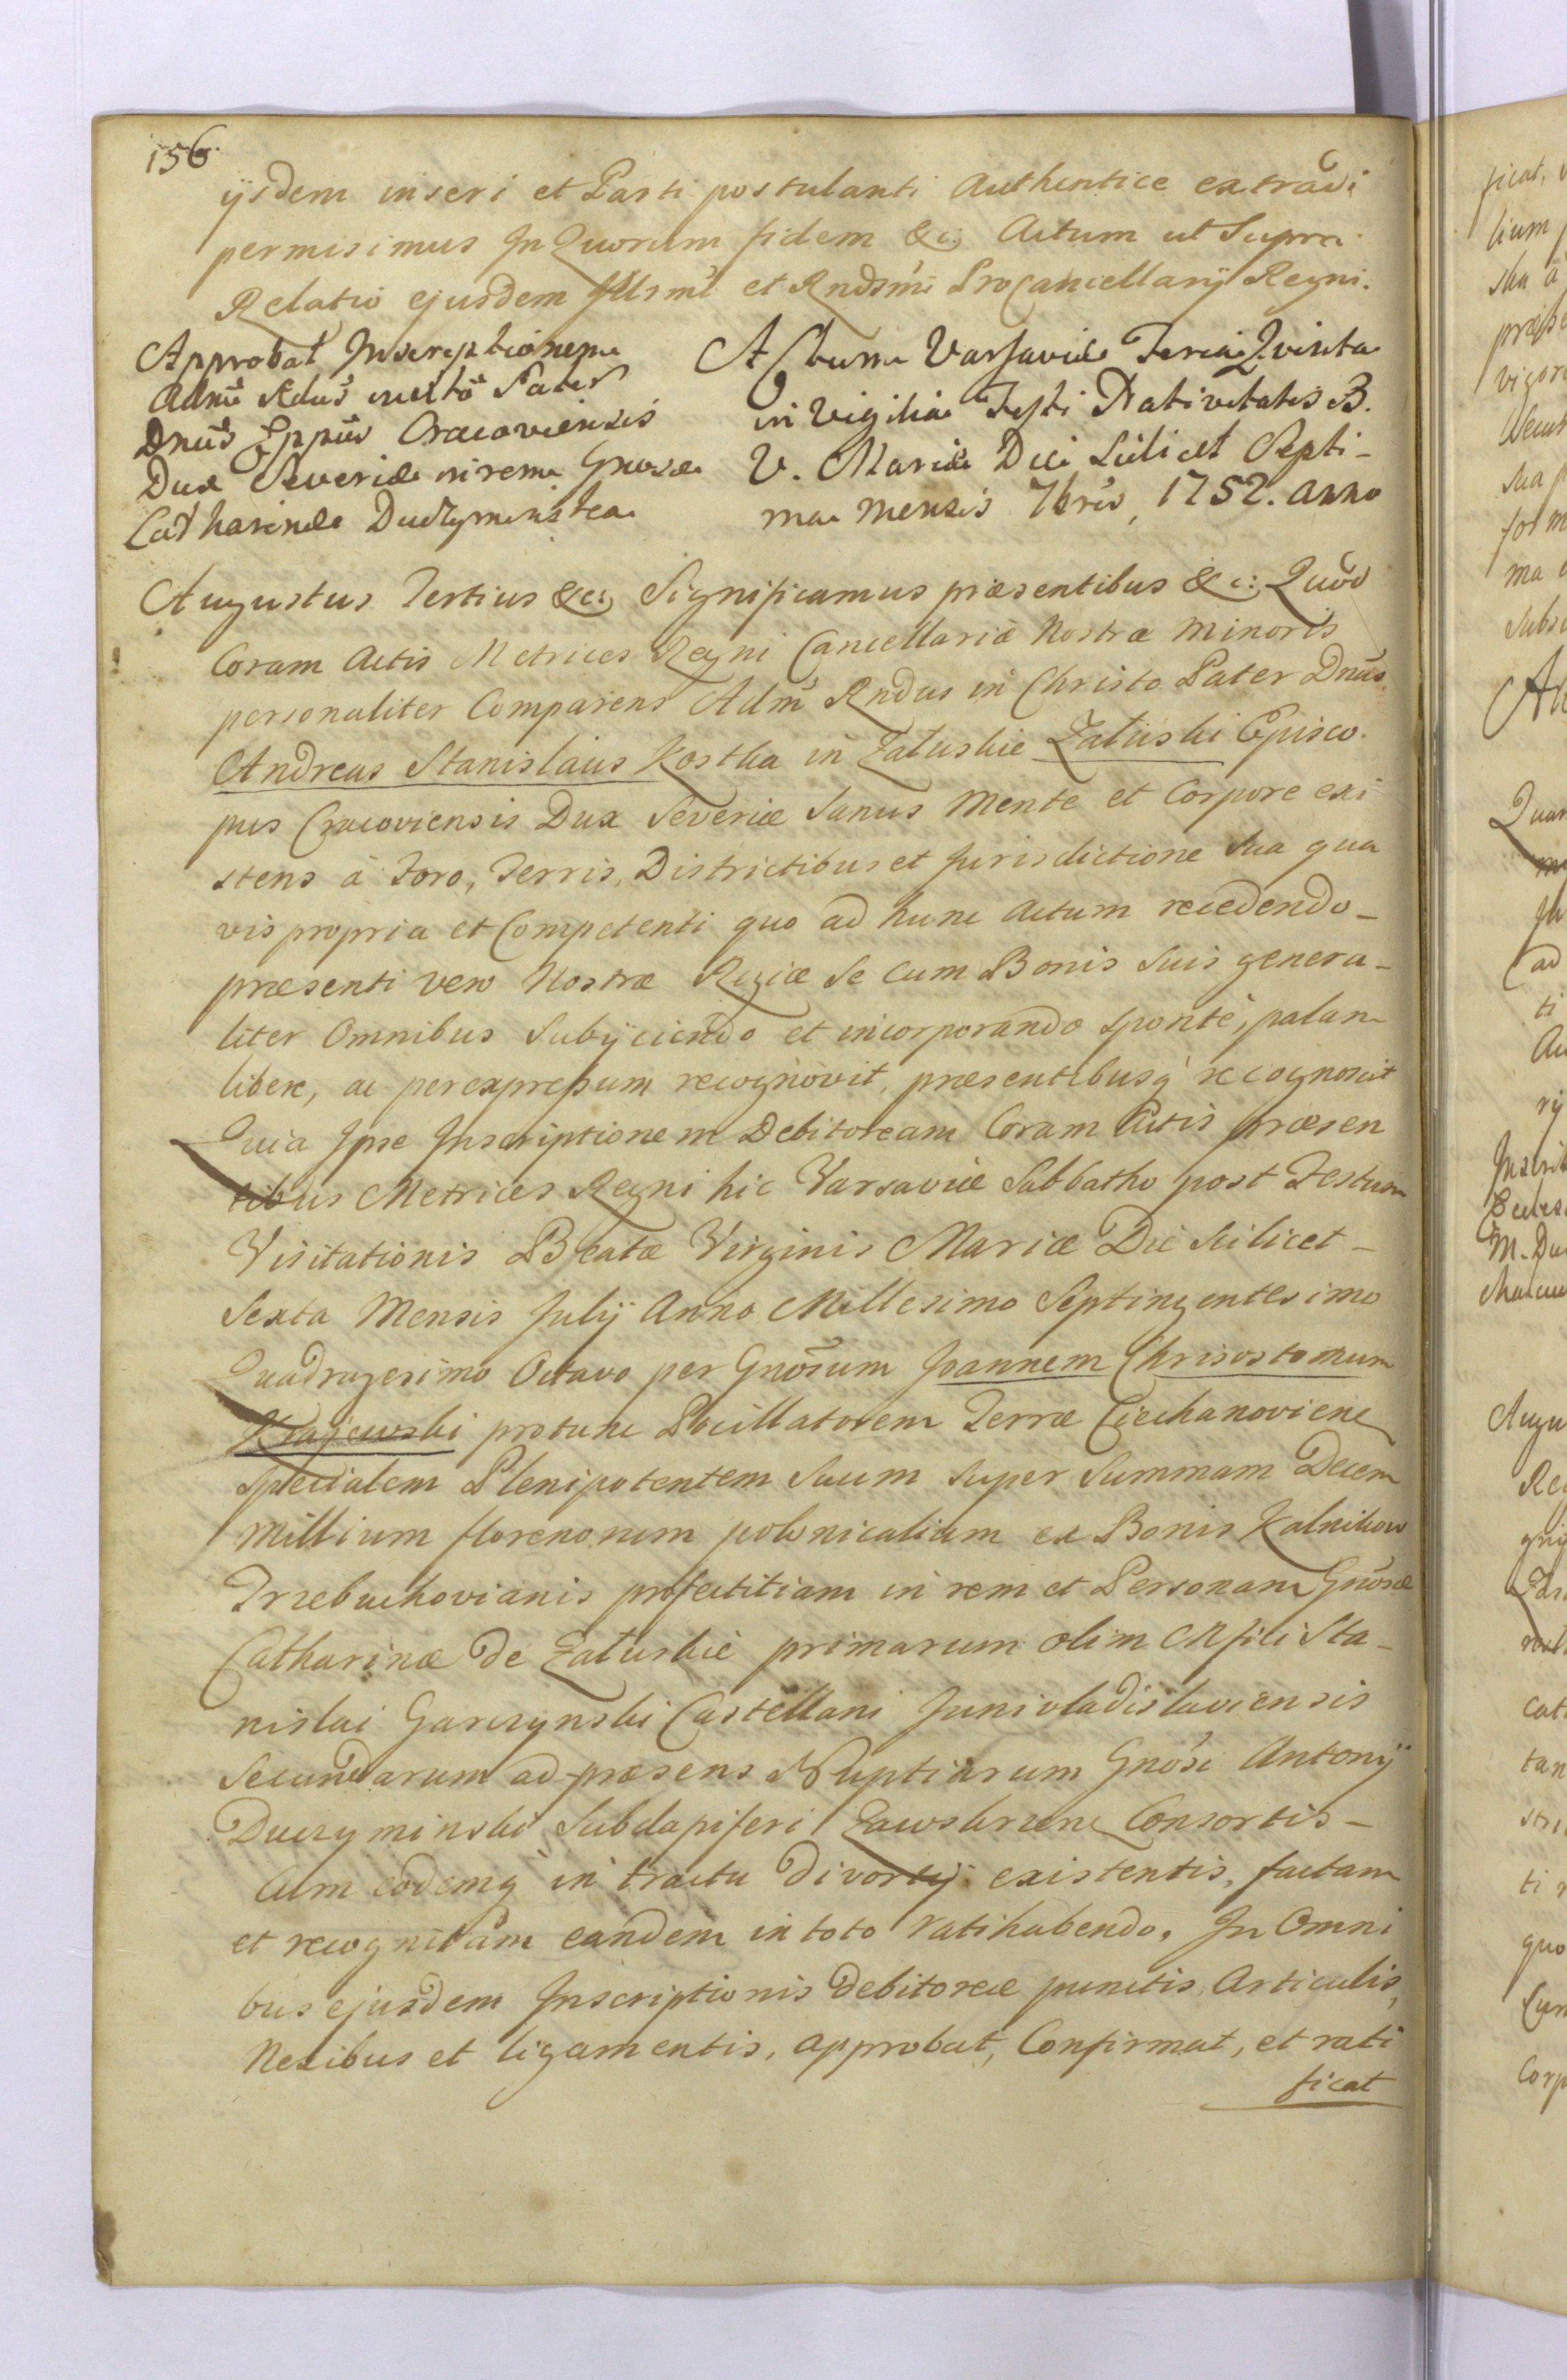 156
ijsdem inseri et Parti postulanti Authentice extradi
permisimus In Quorum fidem &c: Actum ut Supra.
Relatio ejusdem Illsmi et Rndsmi ProCancellarij Regni.
Approbat Inscriptionem
Admu Rdus in Xto Pater
Dnus Eppus Cracoviensis
Dux Severiæ in rem Gnosæ
Catharinæ Duczyminska
Actum Varsaviæ Feria Qvinta
in Vigilia Festi Nativitatis B.
V. Mariæ Die Scilicet Septi-
ma Mensis 7bris, 1752. Anno
Augustus Tertius &c: Significamus præsentibus &c: Quod
Coram Actis Metrices Regni Cancellariæ Nostræ Minoris
personaliter Comparens Adm Rndus in Christo Pater Dnus
Andreas Stanislaus Kostka in Załuskie Załuski Episco-
pus Cracoviensis Dux Severiæ Sanus Mente et Corpore exi
stens à Foro, Terris, Districtibus et Jurisdictione Sua qua
vis propria et Competenti quo ad hunc Actum recedendo-
præsenti vero Nostræ Regiæ Se cum Bonis Suis genera-
liter Omnibus Subijciendo et incorporando sponte, palam
libere, ac per expressum recognovit, præsentibusq recognoscit
Quia Ipse Inscriptionem Debitoream Coram Actis præsen
tibus Metrices Regni hic Varsaviæ Sabbatho post Festum
Visitationis Beatæ Virginis Mariæ Die Scilicet-
Sexta Mensis Julij Anno Millesimo Septingentesimo
Quadragesimo Octavo per Gnosum Joannem Chrisostomum
Krajewski protunc Pocillatorem Terræ Ciechanoviens
Specialem Plenipotentem Suum super Summam Decem
Millium florenorum polonicalium ex Bonis Kalnikow
Trzebuchovianis profectitiam in rem et Personam Gnosæ
Catharinæ de Załuskie primarum olim Mfici Sta-
nislai Garczynski Castellani Junivladislaviensis
Secundarum ad præsens Nuptiarum Gnosi Antonij
Duczyminski Subdapiferi Zawskrzens Consortis-
Cum eodemq in tractu Divortij existentis, factam
et recognitam eandem in toto ratihabendo, In Omni
bus ejusdem Inscriptionis Debitoreæ punctis Articulis,
Nexibus et ligamentis, approbat, Confirmat, et rati
ficat